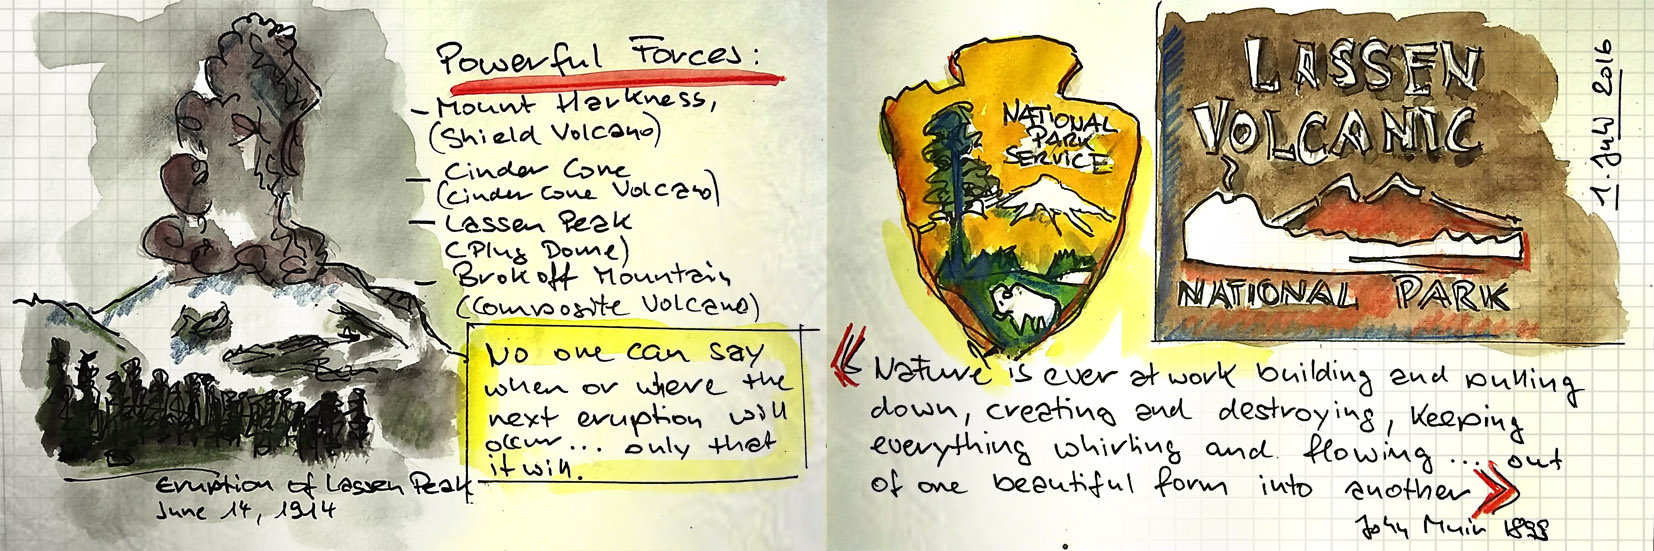 Powerful Forces:
– Mount Harkness,
(Shield Volcano)
– Cinder Cone
(Cinder Cone Volcano)
– Lassen Peak
(Plug Dome)
– Brokoff Mountain
(Composite Volcano)
No one can say
when or where the
next eruption will
occur... only that
it will.
Eruption of Lassen Peak
June 14, 1914
NATIONAL
PARK
SERVICE
LASSEN
VOLCANIC
NATIONAL PARK
1. July 2016
« Nature is ever at work building and pulling
down, creating and destroying, keeping
everything whirling and flowing ... out
of one beautiful form into another »
John Muir